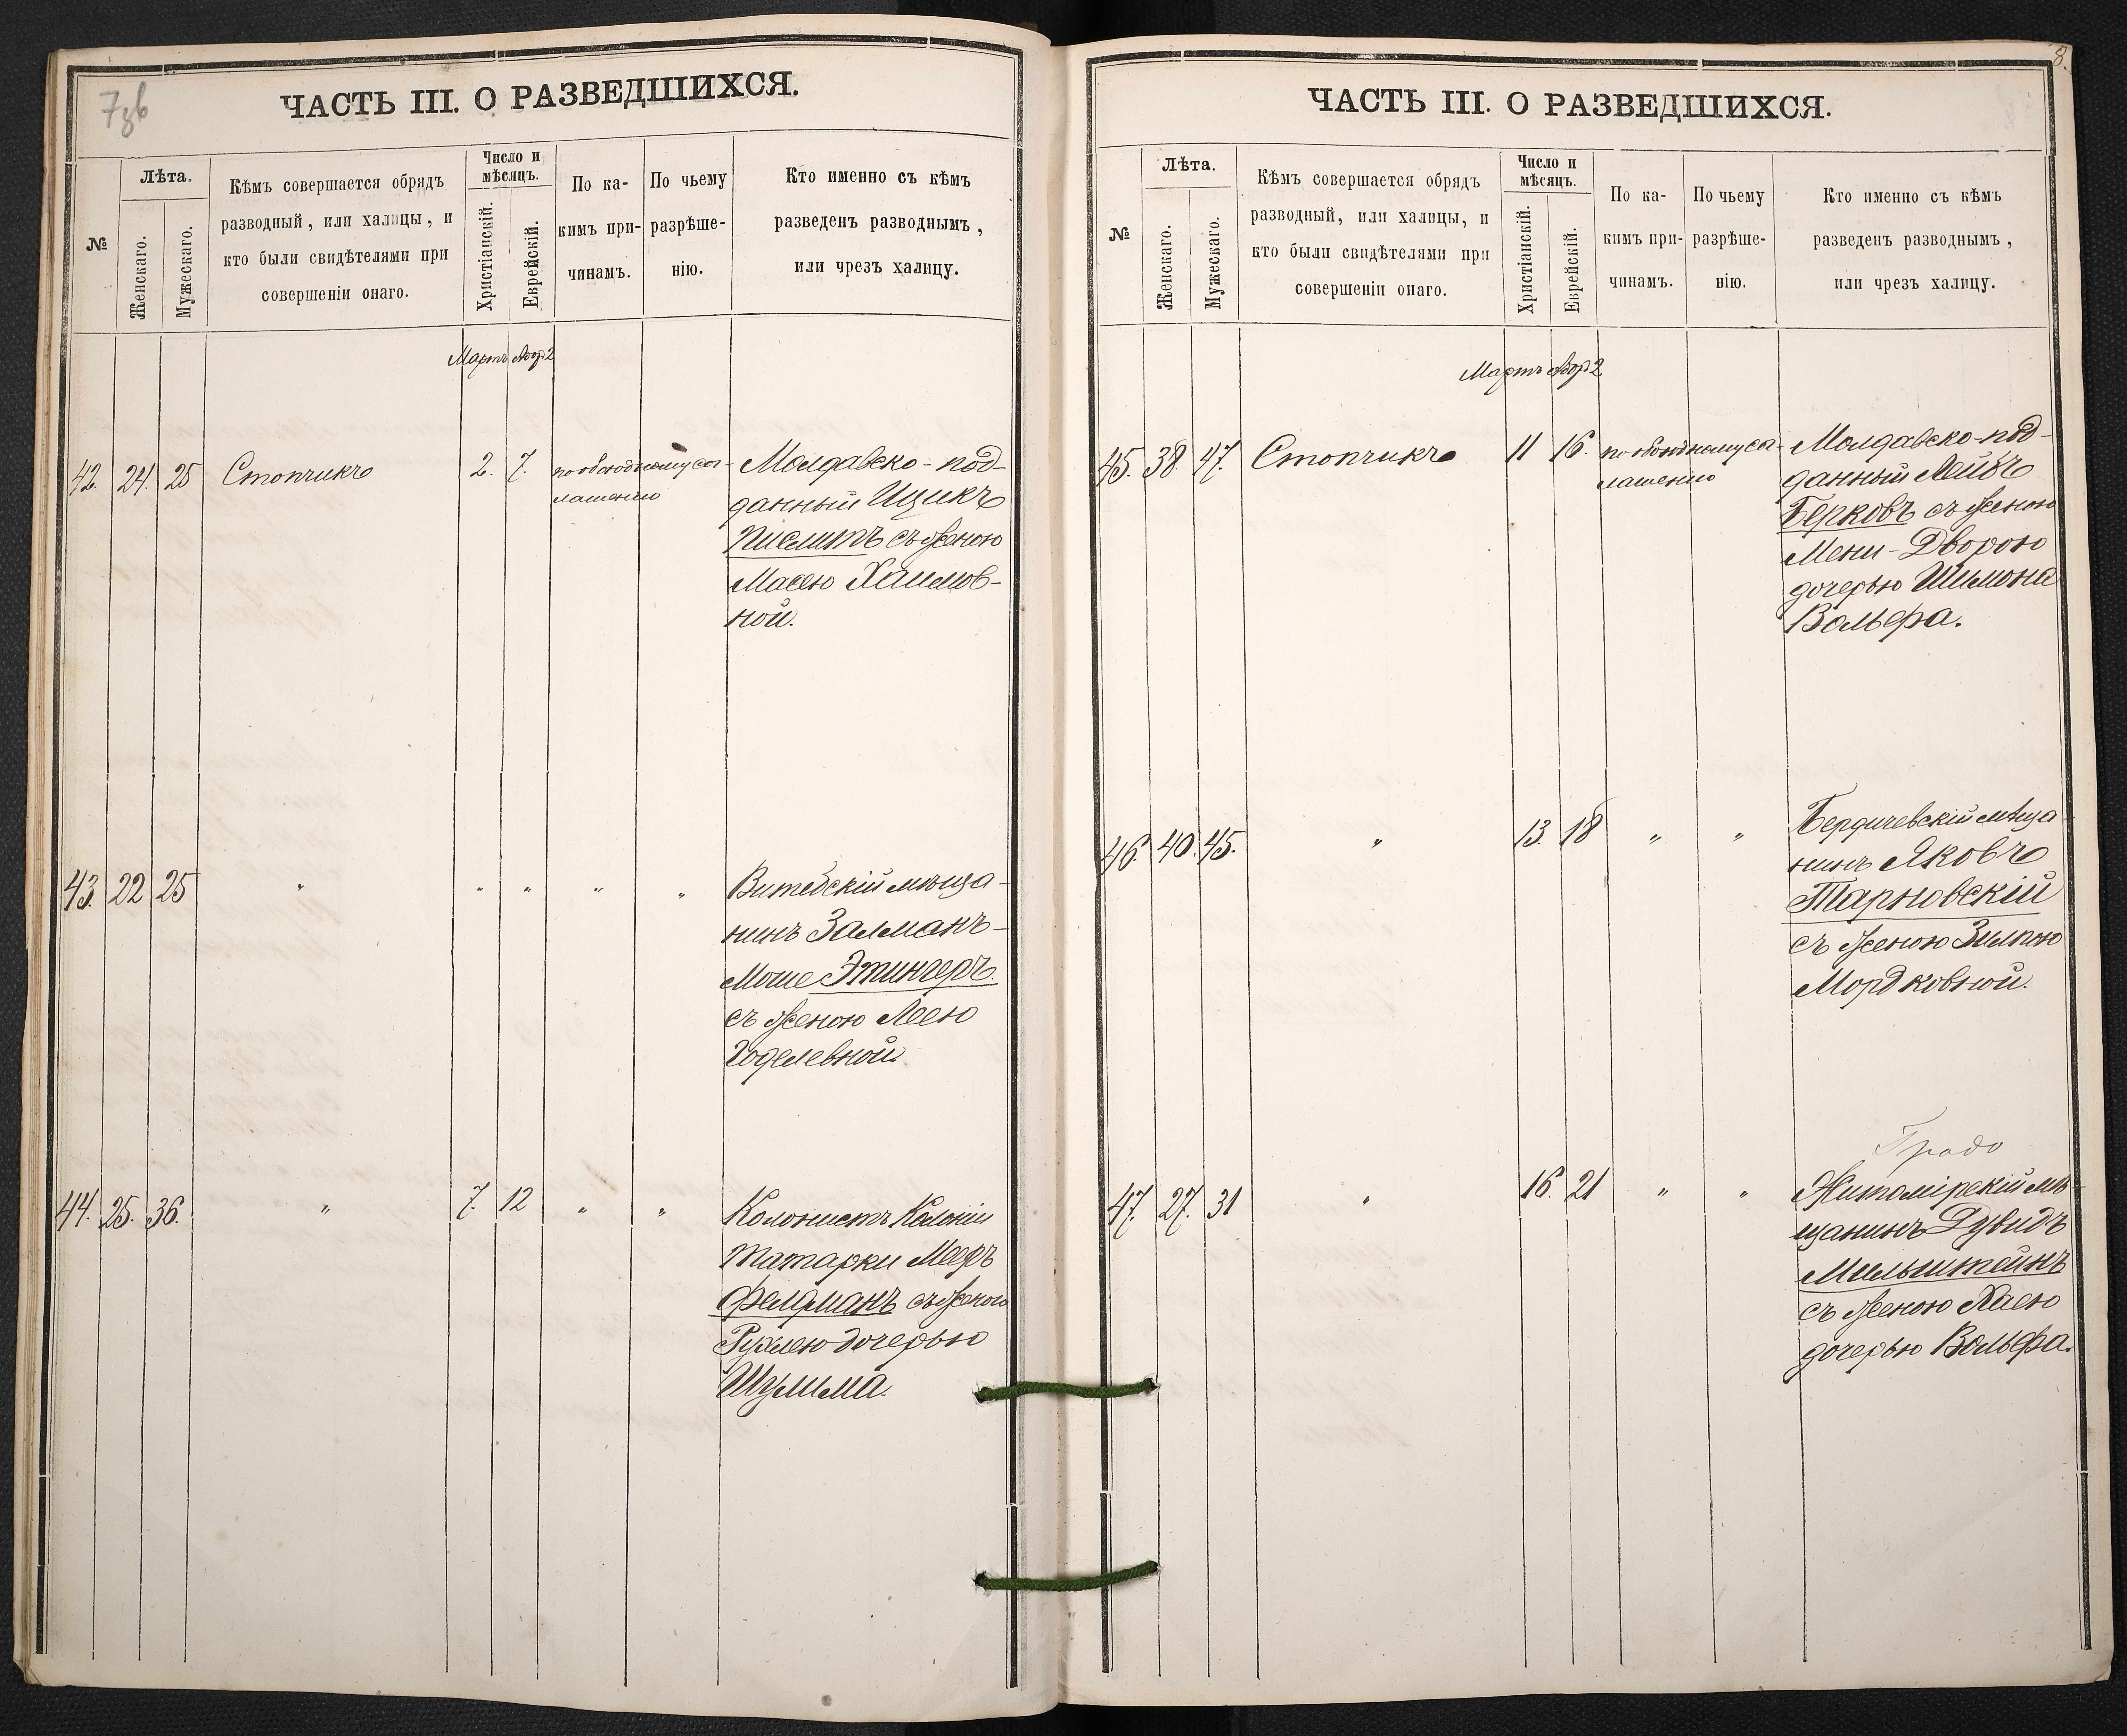 7зв
ЧАСТЬ III. О РАЗВЕДШИХСЯ.
№
Лѣта.
Женскаго.
Мужескаго.
Кѣмъ совершается обрядъ
разводный, или халицы, и
кто были свидѣтелями при
совершеніи онаго.
Число и
мѣсяцъ.
Христіанскій.
Еврейскій.
По ка-
кимъ при-
чинамъ.
По чьему
разрѣше-
нію.
Кто именно съ кѣмъ
разведенъ разводнымъ,
или чрезъ халицу.
Мартъ Адр 2
42. 24. 25 Стопчикъ 2. 7. по обоюдному сог- Молдавско-под-
лашению данный Ицикъ
Писмитъ съ женою
Масею Хаимов-
ной.
43. 22 25 " " " " " Витебскій мѣща-
нинъ Залманъ-
Моше Этингеръ
съ женою Леею
Годелевной.
44. 25. 36. " 7. 12 " " Колонистъ Колоніи
Татарки Мееръ
Фелдманъ съ женою
Рухлею дочерью
Шулима.
8.
ЧАСТЬ III. О РАЗВЕДШИХСЯ.
№
Лѣта.
Женскаго.
Мужескаго.
Кѣмъ совершается обрядъ
разводный, или халицы, и
кто были свидѣтелями при
совершеніи онаго.
Число и
мѣсяцъ.
Христіанскій.
Еврейскій.
По ка-
кимъ при-
чинамъ.
По чьему
разрѣше-
нію.
Кто именно съ кѣмъ
разведенъ разводнымъ,
или чрезъ халицу.
Мартъ Адр 2
45. 38. 47. Стопчикъ 11 16. по обоюдному сог- Молдавско-под-
лашению данный Лейбъ
Берковъ съ женою
Мени-Дворою
дочерью Шимона
Вольфа.
46. 40. 45. " 13. 18 " " Бердичевскій мѣща
нинъ Яковъ
Тарновскій
съ женою Зилпою
Мордковной.
Градо
47. 27. 31 " 16. 21 " " Житомірскій мѣ-
щанинъ Дувидъ
Мильштейнъ
съ женою Хаею
дочерью Вольфа.